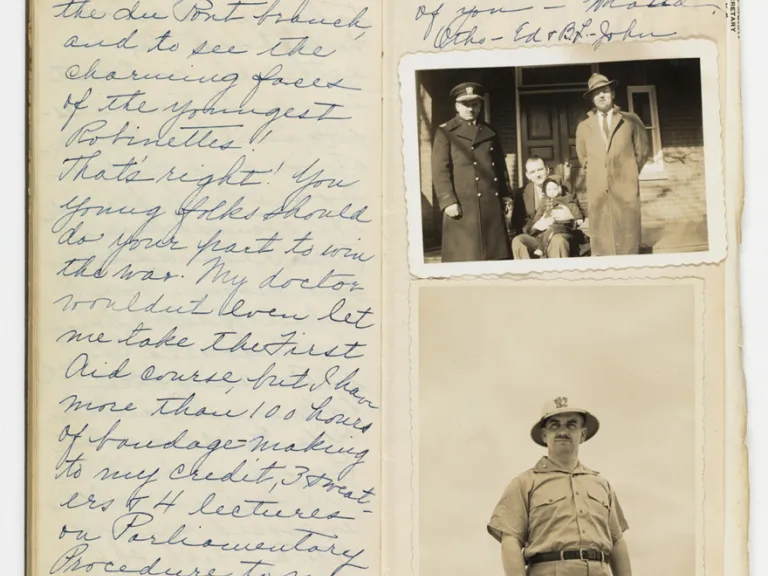 the du Pont branch,
and to see the
charming faces
of the youngest
Robinettes!
That's right! You
young folks should
do your part to win
the war. My doctor
wouldn't even let
me take the First
Aid course, but I have
more than 100 hours
of bandage-making
to my credit, 3 sweat-
ers & 4 lectures
on Parliamentary
Procedure to
of you —
Otho - Ed & B.L. - John
RETARY